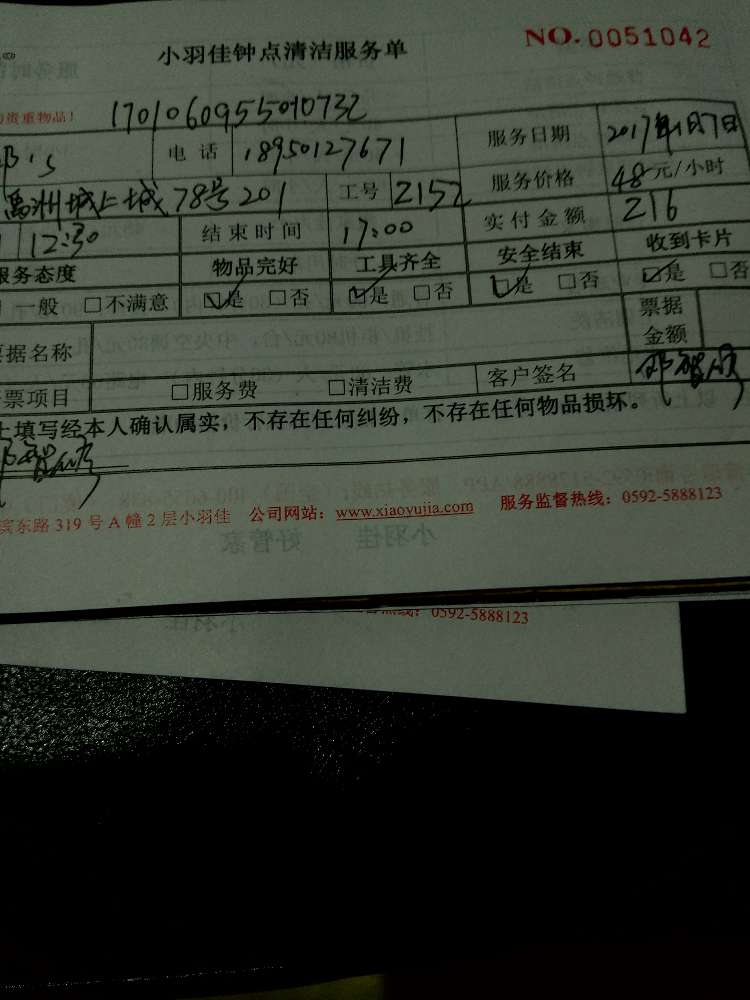 小羽佳钟点清洁服务单 NO.0051042
贵重物品! 1701060955010732
电话 18950127671 服务日期 2017年1月7日
禹洲城上城78号201 工号 2152 服务价格 48元/小时
12:30 结束时间 17:00 实付金额 216
服务态度 物品完好 工具齐全 安全结束 收到卡片
一般 □不满意 ☑是 □否 ☑是 □否 ☑是 □否 ☑是 □否
票据名称 票据金额
票项目 □服务费 □清洁费 客户签名
上填写经本人确认属实，不存在任何纠纷，不存在任何物品损坏。
滨东路319号A幢2层小羽佳 公司网站：www.xiaoyujia.com 服务监督热线：0592-5888123
热线：0592-5888123